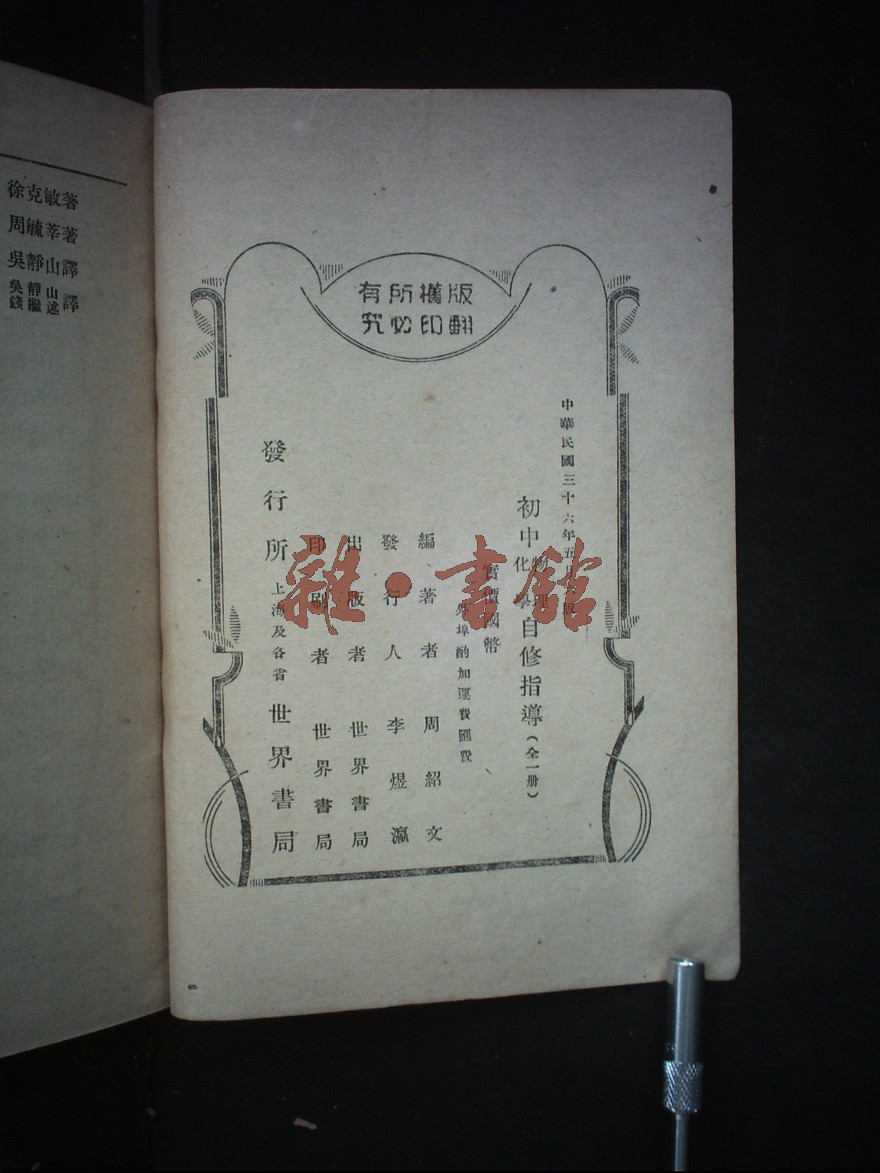 版權所有
翻印必究
中華民國三十六年五月
初中物理化學自修指導（全一册）
實價國幣
外埠酌加運費匯費
編著者 周紹文
發行人 李煜瀛
出版者 世界書局
印刷者 世界書局
發行所 上海及各省 世界書局
徐克敏著
周毓莘著
吳靜山譯
吳靜山 錢繼述 譯
雜·書館